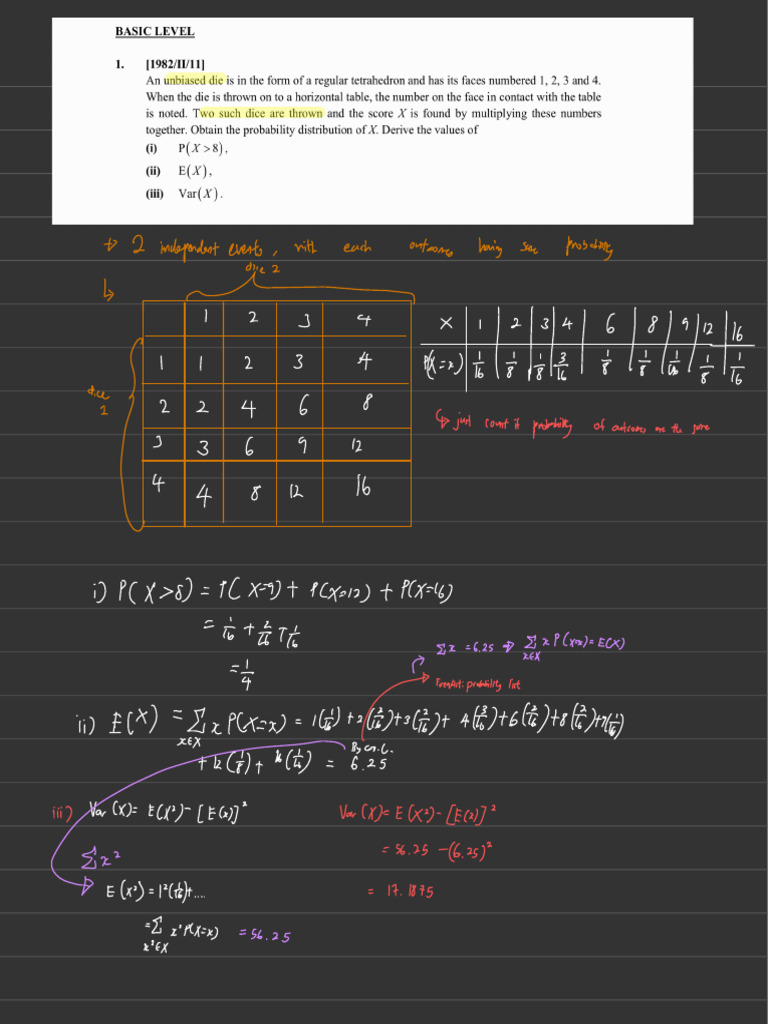 BASIC LEVEL
1. [1982/II/11]
An unbiased die is in the form of a regular tetrahedron and has its faces numbered 1, 2, 3 and 4.
When the die is thrown on to a horizontal table, the number on the face in contact with the table
is noted. Two such dice are thrown and the score X is found by multiplying these numbers
together. Obtain the probability distribution of X. Derive the values of
(i) P(X>8),
(ii) E(X),
(iii) Var(X).
2 independent events, with each outcomes having same probability
dice 2
1 2 3 4
dice 1
1 1 2 3 4
2 2 4 6 8
3 3 6 9 12
4 4 8 12 16
X 1 2 3 4 6 8 9 12 16
P(X=x) 1/16 1/8 1/8 3/16 1/8 1/8 1/16 1/8 1/16
↳ just count if probability of outcomes are the same
i) P(X>8) = P(X=9) + P(X=12) + P(X=16)
= 1/16 + 2/16 + 1/16
= 1/4
Σx = 6.25 ⇒ Σ x P(X=x) = E(X)
x∈X
probability list
ii) E(X) = Σ x P(X=x) = 1(1/16) + 2(2/16) + 3(2/16) + 4(3/16) + 6(2/16) + 8(2/16) + 9(1/16)
x∈X
+ 12(1/8) + 16(1/16) = 6.25
By G.C.
iii) Var(X) = E(X²) - [E(x)]²
Σx²
E(X²) = 1²(1/16) + ....
= Σ x² P(X=x) = 56.25
x²∈X
Var(X) = E(X²) - [E(x)]²
= 56.25 - (6.25)²
= 17.1875